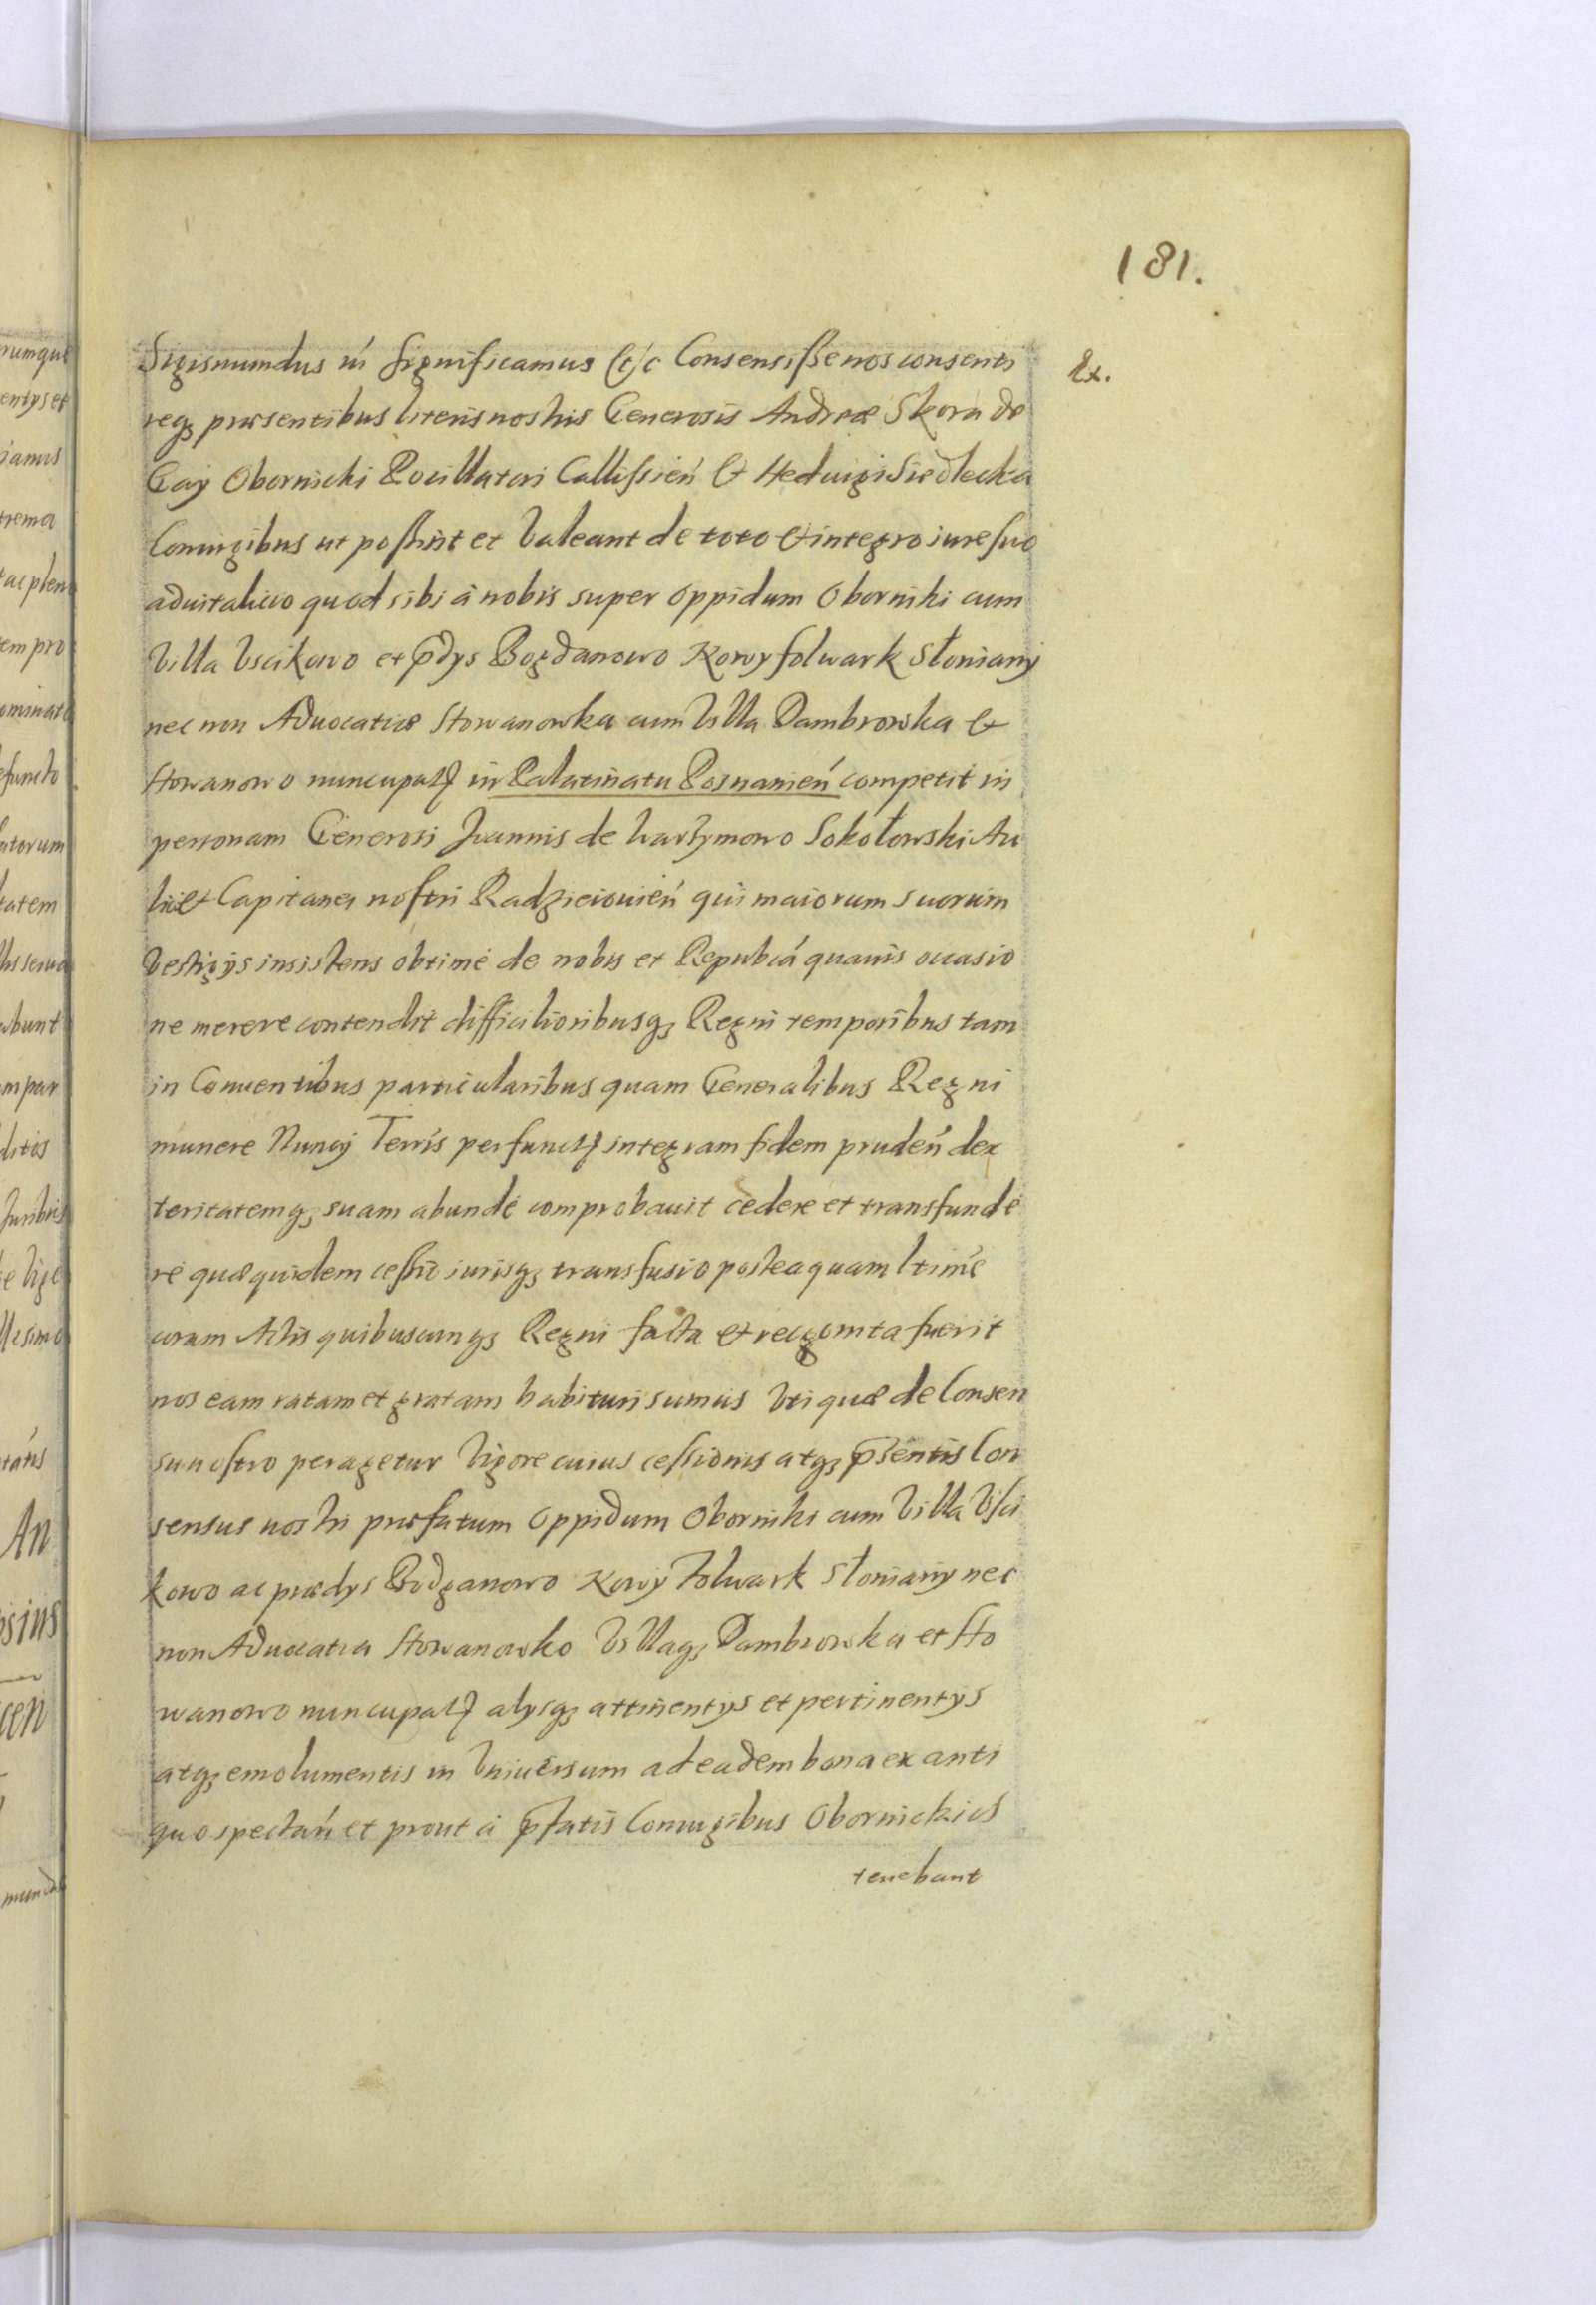 181.
Sigismundus iń significamus &c Consensisse nos consenti Ex.
reqʒ præsentibus literis nostris Generosis Andreæ Skora de
Gay Obornicki Pocillatori Callissień & Heduigi Siedlecka
Coniugibus ut possint et Valeant de toto & integro iure suo
aduitalicio quod sibi à nobis super oppidum Oborniki cum
Villa Vscikowo et p̄dys Bogdanowo Nowy folwark Słoniawy
nec non Aduocatiæ Stowanowka cum Villa Dambrowka &
Stowanowo nuncupatʒ in Palatinatu Posnanień competit in
personam Generosi Joannis de Warzymowo Sokołowski Au
lici et Capitanei nostri Radzieiouień qui maiorum suorum
Vestigijs insistens obtimé de nobis et Republcá quauis occasio
ne merere contendit difficilioribusqʒ Regni temporibus tam
in Conuentibus particularibus quam Generalibus Regni
munere Nuncij Terris perfunctʒ integram fidem prudeń dex
teritatemqʒ suam abundé comprobauit cedere et transfunde
re quæquidem cessio iurisqʒ transfusio posteaquam ltimé
coram Actis quibuscunqʒ Regni facta & recognita fuerit
nos eam ratam et gratam habituri sumus Vti quæ de Consen
su nostro peragetur Vigore cuius cessionis atqʒ p̄sentis Con
sensus nostri præfatum Oppidum Oborniki cum Villa Vsci
kowo ac prædys Bodganowo Nowy Folwark Słoniawy nec
non Aduocatia Stowanowko Villaqʒ Dambrowka et Sto
wanowo nuncupatʒ alysqʒ attinentys et pertinentys
atqʒ emolumentis in Vniuersum ad eadem bona ex anti
quo spectań et prout à p̄fatis Coniugibus Obornickies
tenebant